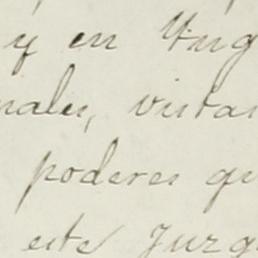 y en Yng
nales, vistas
poderes qu
este Juzg